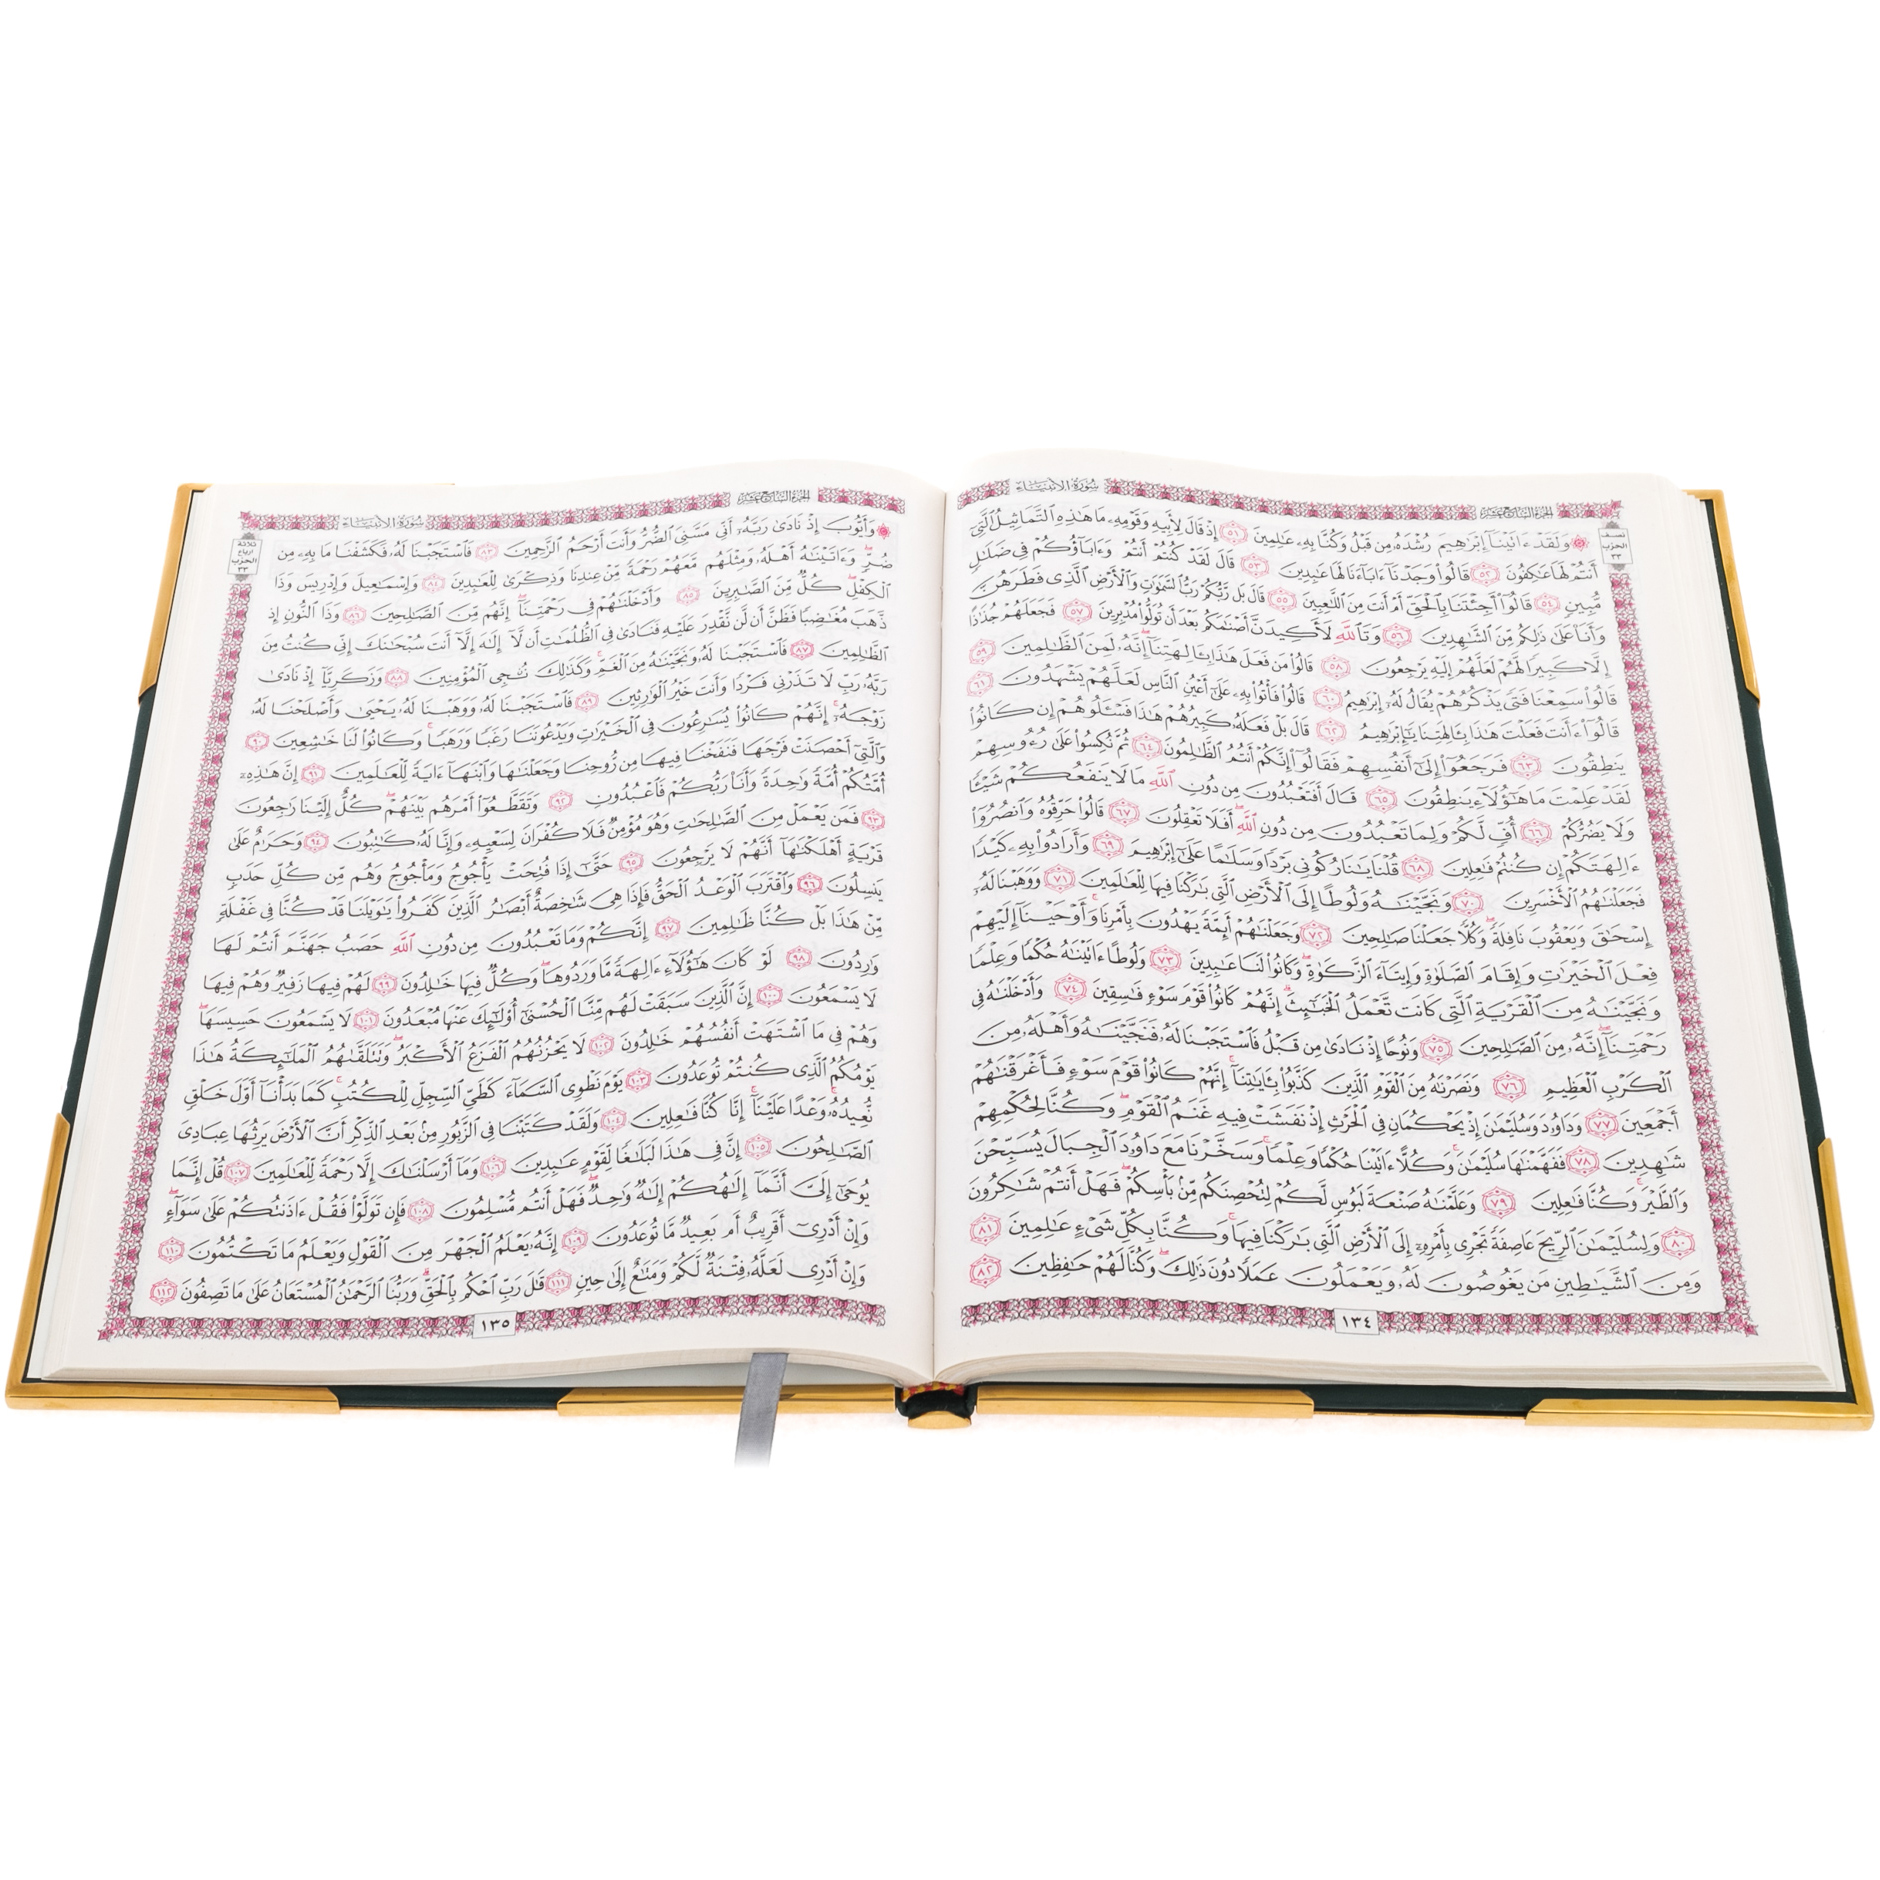 سُورَةُ الأَنبِيَاء الجُزءُ السَّابِعَ عَشَرَ
نصف الحزب ٣٣
۞ وَلَقَدْ ءَاتَيْنَآ إِبْرَٰهِيمَ رُشْدَهُۥ مِن قَبْلُ وَكُنَّا بِهِۦ عَٰلِمِينَ ٥١ إِذْ قَالَ لِأَبِيهِ وَقَوْمِهِۦ مَا هَٰذِهِ ٱلتَّمَاثِيلُ ٱلَّتِىٓ
أَنتُمْ لَهَا عَٰكِفُونَ ٥٢ قَالُوا۟ وَجَدْنَآ ءَابَآءَنَا لَهَا عَٰبِدِينَ ٥٣ قَالَ لَقَدْ كُنتُمْ أَنتُمْ وَءَابَآؤُكُمْ فِى ضَلَٰلٍ
مُّبِينٍ ٥٤ قَالُوٓا۟ أَجِئْتَنَا بِٱلْحَقِّ أَمْ أَنتَ مِنَ ٱللَّٰعِبِينَ ٥٥ قَالَ بَل رَّبُّكُمْ رَبُّ ٱلسَّمَٰوَٰتِ وَٱلْأَرْضِ ٱلَّذِى فَطَرَهُنَّ
وَأَنَا۠ عَلَىٰ ذَٰلِكُم مِّنَ ٱلشَّٰهِدِينَ ٥٦ وَتَٱللَّهِ لَأَكِيدَنَّ أَصْنَٰمَكُم بَعْدَ أَن تُوَلُّوا۟ مُدْبِرِينَ ٥٧ فَجَعَلَهُمْ جُذَٰذًا
إِلَّا كَبِيرًا لَّهُمْ لَعَلَّهُمْ إِلَيْهِ يَرْجِعُونَ ٥٨ قَالُوا۟ مَن فَعَلَ هَٰذَا بِـَٔالِهَتِنَآ إِنَّهُۥ لَمِنَ ٱلظَّٰلِمِينَ ٥٩
قَالُوا۟ سَمِعْنَا فَتًى يَذْكُرُهُمْ يُقَالُ لَهُۥٓ إِبْرَٰهِيمُ ٦٠ قَالُوا۟ فَأْتُوا۟ بِهِۦ عَلَىٰٓ أَعْيُنِ ٱلنَّاسِ لَعَلَّهُمْ يَشْهَدُونَ ٦١
قَالُوٓا۟ ءَأَنتَ فَعَلْتَ هَٰذَا بِـَٔالِهَتِنَا يَٰٓإِبْرَٰهِيمُ ٦٢ قَالَ بَلْ فَعَلَهُۥ كَبِيرُهُمْ هَٰذَا فَسْـَٔلُوهُمْ إِن كَانُوا۟
يَنطِقُونَ ٦٣ فَرَجَعُوٓا۟ إِلَىٰٓ أَنفُسِهِمْ فَقَالُوٓا۟ إِنَّكُمْ أَنتُمُ ٱلظَّٰلِمُونَ ٦٤ ثُمَّ نُكِسُوا۟ عَلَىٰ رُءُوسِهِمْ
لَقَدْ عَلِمْتَ مَا هَٰٓؤُلَآءِ يَنطِقُونَ ٦٥ قَالَ أَفَتَعْبُدُونَ مِن دُونِ ٱللَّهِ مَا لَا يَنفَعُكُمْ شَيْـًٔا
وَلَا يَضُرُّكُمْ ٦٦ أُفٍّ لَّكُمْ وَلِمَا تَعْبُدُونَ مِن دُونِ ٱللَّهِ ۖ أَفَلَا تَعْقِلُونَ ٦٧ قَالُوا۟ حَرِّقُوهُ وَٱنصُرُوٓا۟
ءَالِهَتَكُمْ إِن كُنتُمْ فَٰعِلِينَ ٦٨ قُلْنَا يَٰنَارُ كُونِى بَرْدًا وَسَلَٰمًا عَلَىٰٓ إِبْرَٰهِيمَ ٦٩ وَأَرَادُوا۟ بِهِۦ كَيْدًا
فَجَعَلْنَٰهُمُ ٱلْأَخْسَرِينَ ٧٠ وَنَجَّيْنَٰهُ وَلُوطًا إِلَى ٱلْأَرْضِ ٱلَّتِى بَٰرَكْنَا فِيهَا لِلْعَٰلَمِينَ ٧١ وَوَهَبْنَا لَهُۥٓ
إِسْحَٰقَ وَيَعْقُوبَ نَافِلَةً ۖ وَكُلًّا جَعَلْنَا صَٰلِحِينَ ٧٢ وَجَعَلْنَٰهُمْ أَئِمَّةً يَهْدُونَ بِأَمْرِنَا وَأَوْحَيْنَآ إِلَيْهِمْ
فِعْلَ ٱلْخَيْرَٰتِ وَإِقَامَ ٱلصَّلَوٰةِ وَإِيتَآءَ ٱلزَّكَوٰةِ ۖ وَكَانُوا۟ لَنَا عَٰبِدِينَ ٧٣ وَلُوطًا ءَاتَيْنَٰهُ حُكْمًا وَعِلْمًا
وَنَجَّيْنَٰهُ مِنَ ٱلْقَرْيَةِ ٱلَّتِى كَانَت تَّعْمَلُ ٱلْخَبَٰٓئِثَ ۗ إِنَّهُمْ كَانُوا۟ قَوْمَ سَوْءٍ فَٰسِقِينَ ٧٤ وَأَدْخَلْنَٰهُ فِى
رَحْمَتِنَآ ۖ إِنَّهُۥ مِنَ ٱلصَّٰلِحِينَ ٧٥ وَنُوحًا إِذْ نَادَىٰ مِن قَبْلُ فَٱسْتَجَبْنَا لَهُۥ فَنَجَّيْنَٰهُ وَأَهْلَهُۥ مِنَ
ٱلْكَرْبِ ٱلْعَظِيمِ ٧٦ وَنَصَرْنَٰهُ مِنَ ٱلْقَوْمِ ٱلَّذِينَ كَذَّبُوا۟ بِـَٔايَٰتِنَآ ۚ إِنَّهُمْ كَانُوا۟ قَوْمَ سَوْءٍ فَأَغْرَقْنَٰهُمْ
أَجْمَعِينَ ٧٧ وَدَاوُۥدَ وَسُلَيْمَٰنَ إِذْ يَحْكُمَانِ فِى ٱلْحَرْثِ إِذْ نَفَشَتْ فِيهِ غَنَمُ ٱلْقَوْمِ ۖ وَكُنَّا لِحُكْمِهِمْ
شَٰهِدِينَ ٧٨ فَفَهَّمْنَٰهَا سُلَيْمَٰنَ ۚ وَكُلًّا ءَاتَيْنَا حُكْمًا وَعِلْمًا ۚ وَسَخَّرْنَا مَعَ دَاوُۥدَ ٱلْجِبَالَ يُسَبِّحْنَ
وَٱلطَّيْرَ ۚ وَكُنَّا فَٰعِلِينَ ٧٩ وَعَلَّمْنَٰهُ صَنْعَةَ لَبُوسٍ لَّكُمْ لِتُحْصِنَكُم مِّنۢ بَأْسِكُمْ ۖ فَهَلْ أَنتُمْ شَٰكِرُونَ
٨٠ وَلِسُلَيْمَٰنَ ٱلرِّيحَ عَاصِفَةً تَجْرِى بِأَمْرِهِۦٓ إِلَى ٱلْأَرْضِ ٱلَّتِى بَٰرَكْنَا فِيهَا ۚ وَكُنَّا بِكُلِّ شَىْءٍ عَٰلِمِينَ ٨١
وَمِنَ ٱلشَّيَٰطِينِ مَن يَغُوصُونَ لَهُۥ وَيَعْمَلُونَ عَمَلًا دُونَ ذَٰلِكَ ۖ وَكُنَّا لَهُمْ حَٰفِظِينَ ٨٢
١٣٤
الجُزءُ السَّابِعَ عَشَرَ سُورَةُ الأَنبِيَاء
ثلاثة ارباع الحزب ٣٣
۞ وَأَيُّوبَ إِذْ نَادَىٰ رَبَّهُۥٓ أَنِّى مَسَّنِىَ ٱلضُّرُّ وَأَنتَ أَرْحَمُ ٱلرَّٰحِمِينَ ٨٣ فَٱسْتَجَبْنَا لَهُۥ فَكَشَفْنَا مَا بِهِۦ مِن
ضُرٍّ ۖ وَءَاتَيْنَٰهُ أَهْلَهُۥ وَمِثْلَهُم مَّعَهُمْ رَحْمَةً مِّنْ عِندِنَا وَذِكْرَىٰ لِلْعَٰبِدِينَ ٨٤ وَإِسْمَٰعِيلَ وَإِدْرِيسَ وَذَا
ٱلْكِفْلِ ۖ كُلٌّ مِّنَ ٱلصَّٰبِرِينَ ٨٥ وَأَدْخَلْنَٰهُمْ فِى رَحْمَتِنَآ ۖ إِنَّهُم مِّنَ ٱلصَّٰلِحِينَ ٨٦ وَذَا ٱلنُّونِ إِذ
ذَّهَبَ مُغَٰضِبًا فَظَنَّ أَن لَّن نَّقْدِرَ عَلَيْهِ فَنَادَىٰ فِى ٱلظُّلُمَٰتِ أَن لَّآ إِلَٰهَ إِلَّآ أَنتَ سُبْحَٰنَكَ إِنِّى كُنتُ مِنَ
ٱلظَّٰلِمِينَ ٨٧ فَٱسْتَجَبْنَا لَهُۥ وَنَجَّيْنَٰهُ مِنَ ٱلْغَمِّ ۚ وَكَذَٰلِكَ نُـۨجِى ٱلْمُؤْمِنِينَ ٨٨ وَزَكَرِيَّآ إِذْ نَادَىٰ
رَبَّهُۥ رَبِّ لَا تَذَرْنِى فَرْدًا وَأَنتَ خَيْرُ ٱلْوَٰرِثِينَ ٨٩ فَٱسْتَجَبْنَا لَهُۥ وَوَهَبْنَا لَهُۥ يَحْيَىٰ وَأَصْلَحْنَا لَهُۥ
زَوْجَهُۥٓ ۚ إِنَّهُمْ كَانُوا۟ يُسَٰرِعُونَ فِى ٱلْخَيْرَٰتِ وَيَدْعُونَنَا رَغَبًا وَرَهَبًا ۖ وَكَانُوا۟ لَنَا خَٰشِعِينَ ٩٠
وَٱلَّتِىٓ أَحْصَنَتْ فَرْجَهَا فَنَفَخْنَا فِيهَا مِن رُّوحِنَا وَجَعَلْنَٰهَا وَٱبْنَهَآ ءَايَةً لِّلْعَٰلَمِينَ ٩١ إِنَّ هَٰذِهِۦٓ
أُمَّتُكُمْ أُمَّةً وَٰحِدَةً وَأَنَا۠ رَبُّكُمْ فَٱعْبُدُونِ ٩٢ وَتَقَطَّعُوٓا۟ أَمْرَهُم بَيْنَهُمْ ۖ كُلٌّ إِلَيْنَا رَٰجِعُونَ
٩٣ فَمَن يَعْمَلْ مِنَ ٱلصَّٰلِحَٰتِ وَهُوَ مُؤْمِنٌ فَلَا كُفْرَانَ لِسَعْيِهِۦ وَإِنَّا لَهُۥ كَٰتِبُونَ ٩٤ وَحَرَٰمٌ عَلَىٰ
قَرْيَةٍ أَهْلَكْنَٰهَآ أَنَّهُمْ لَا يَرْجِعُونَ ٩٥ حَتَّىٰٓ إِذَا فُتِحَتْ يَأْجُوجُ وَمَأْجُوجُ وَهُم مِّن كُلِّ حَدَبٍ
يَنسِلُونَ ٩٦ وَٱقْتَرَبَ ٱلْوَعْدُ ٱلْحَقُّ فَإِذَا هِىَ شَٰخِصَةٌ أَبْصَٰرُ ٱلَّذِينَ كَفَرُوا۟ يَٰوَيْلَنَا قَدْ كُنَّا فِى غَفْلَةٍ
مِّنْ هَٰذَا بَلْ كُنَّا ظَٰلِمِينَ ٩٧ إِنَّكُمْ وَمَا تَعْبُدُونَ مِن دُونِ ٱللَّهِ حَصَبُ جَهَنَّمَ أَنتُمْ لَهَا
وَٰرِدُونَ ٩٨ لَوْ كَانَ هَٰٓؤُلَآءِ ءَالِهَةً مَّا وَرَدُوهَا ۖ وَكُلٌّ فِيهَا خَٰلِدُونَ ٩٩ لَهُمْ فِيهَا زَفِيرٌ وَهُمْ فِيهَا
لَا يَسْمَعُونَ ١٠٠ إِنَّ ٱلَّذِينَ سَبَقَتْ لَهُم مِّنَّا ٱلْحُسْنَىٰٓ أُو۟لَٰٓئِكَ عَنْهَا مُبْعَدُونَ ١٠١ لَا يَسْمَعُونَ حَسِيسَهَا ۖ
وَهُمْ فِى مَا ٱشْتَهَتْ أَنفُسُهُمْ خَٰلِدُونَ ١٠٢ لَا يَحْزُنُهُمُ ٱلْفَزَعُ ٱلْأَكْبَرُ وَتَتَلَقَّىٰهُمُ ٱلْمَلَٰٓئِكَةُ هَٰذَا
يَوْمُكُمُ ٱلَّذِى كُنتُمْ تُوعَدُونَ ١٠٣ يَوْمَ نَطْوِى ٱلسَّمَآءَ كَطَىِّ ٱلسِّجِلِّ لِلْكُتُبِ ۚ كَمَا بَدَأْنَآ أَوَّلَ خَلْقٍ
نُّعِيدُهُۥ ۚ وَعْدًا عَلَيْنَآ ۚ إِنَّا كُنَّا فَٰعِلِينَ ١٠٤ وَلَقَدْ كَتَبْنَا فِى ٱلزَّبُورِ مِنۢ بَعْدِ ٱلذِّكْرِ أَنَّ ٱلْأَرْضَ يَرِثُهَا عِبَادِىَ
ٱلصَّٰلِحُونَ ١٠٥ إِنَّ فِى هَٰذَا لَبَلَٰغًا لِّقَوْمٍ عَٰبِدِينَ ١٠٦ وَمَآ أَرْسَلْنَٰكَ إِلَّا رَحْمَةً لِّلْعَٰلَمِينَ ١٠٧ قُلْ إِنَّمَا
يُوحَىٰٓ إِلَىَّ أَنَّمَآ إِلَٰهُكُمْ إِلَٰهٌ وَٰحِدٌ ۖ فَهَلْ أَنتُم مُّسْلِمُونَ ١٠٨ فَإِن تَوَلَّوْا۟ فَقُلْ ءَاذَنتُكُمْ عَلَىٰ سَوَآءٍ ۖ
وَإِنْ أَدْرِىٓ أَقَرِيبٌ أَم بَعِيدٌ مَّا تُوعَدُونَ ١٠٩ إِنَّهُۥ يَعْلَمُ ٱلْجَهْرَ مِنَ ٱلْقَوْلِ وَيَعْلَمُ مَا تَكْتُمُونَ ١١٠
وَإِنْ أَدْرِى لَعَلَّهُۥ فِتْنَةٌ لَّكُمْ وَمَتَٰعٌ إِلَىٰ حِينٍ ١١١ قَٰلَ رَبِّ ٱحْكُم بِٱلْحَقِّ ۗ وَرَبُّنَا ٱلرَّحْمَٰنُ ٱلْمُسْتَعَانُ عَلَىٰ مَا تَصِفُونَ ١١٢
١٣٥